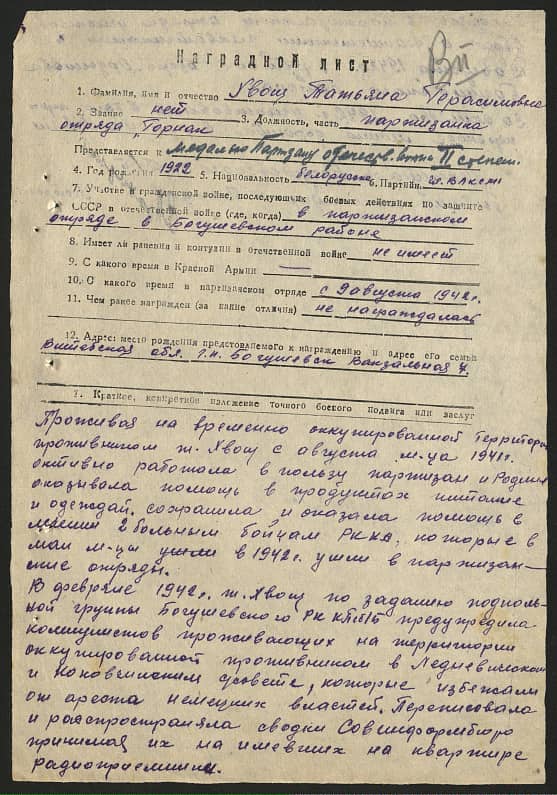 Наградной лист
ВП
1. Фамилия, имя и отчество Хвощ Татьяна Герасимовна
2. Звание нет 3. Должность, часть партизанка
отряда "Горнак"
Представляется к медалью Партизану отечествен. войны II степени.
4. Год рождения 1922 5. Национальность белоруска 6. Партийн. чл. ВЛКСМ
7. Участие в гражданской войне, последующих боевых действиях по защите
СССР в отечественной войне (где, когда) в партизанском
отряде в Богушевском районе
8. Имеет ли ранения и контузии в отечественной войне не имеет
9. С какого время в Красной Армии —
10. С какого время в партизанском отряде с 9 августа 1942 г.
11. Чем ранее награжден (за какие отличия) не награждалась
12. Адрес место рождения представляемого к награждению и адрес его семьи
Витебская обл. г.п. Богушевск Вокзальная 4.
1. Краткое, конкретное изложение точного боевого подвига или заслуг
Проживая на временно оккупированной территории
противником т. Хвощ с августа м-ца 1941 г.
активно работала в пользу партизан и Родине
оказывала помощь в продуктах питание
и одеждой. сохранила и оказала помощь в
лечении 2 больным бойцам РККА, которые в
мае м-цы ушли в 1942 г. ушли в партизан—
ские отряды.
В феврале 1942 г. т. Хвощ по заданию подполь-
ной группы Богушевского РК КП(б)Б предупредила
коммунистов проживающих на территории
оккупированной противником в Ледневичском
и совете, которые избежали
от ареста немецких властей. Переписовала
и распространяла сводки Совинформбюро
принимая их на имевших на квартире
радиоприемники.